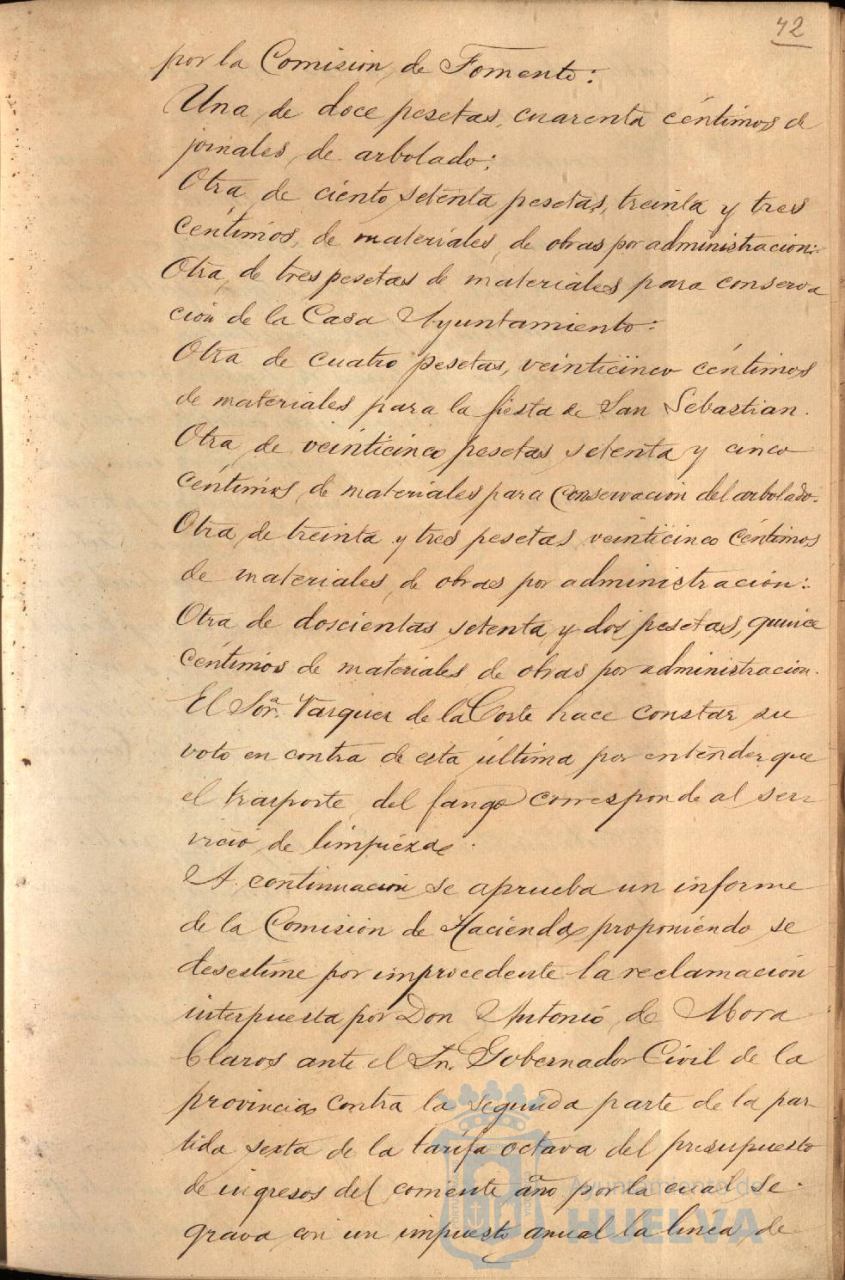 42
por la Comisión, de Fomento:
Una, de doce pesetas, cuarenta céntimos de
jornales, de arbolado:
Otra, de ciento setenta pesetas, treinta y tres
céntimos, de materiales, de obras por administracion:
Otra, de tres pesetas de materiales para conserva
ción de la Casa Ayuntamiento:
Otra de cuatro pesetas, veinticinco céntimos
de materiales para la fiesta de San Sebastian.
Otra de veinticinco pesetas setenta y cinco
céntimos, de materiales para conservacion del arbolado.
Otra, de treinta y tres pesetas, veinticinco céntimos
de materiales, de obras por administración:
Otra de doscientas setenta y dos pesetas, quince
céntimos de materiales de obras por administracion.
El Sor. Vazquez de la Corte hace constar su
voto en contra de esta última por entender que
el trasporte del fango corresponde al ser
vicio, de limpieza.
A continuacion se aprueba un informe
de la Comisión de Hacienda proponiendo se
desestime por improcedente la reclamación
interpuesta por Don Antonio, de Mora
Claros ante el Sr. Gobernador Civil de la
provincia contra la segunda parte de la par
tida sexta de la tarifa octava del presupuesto
de ingresos del corriente año por la cual se
grava con un impuesto anual la linea, de
Ayuntamiento de
HUELVA